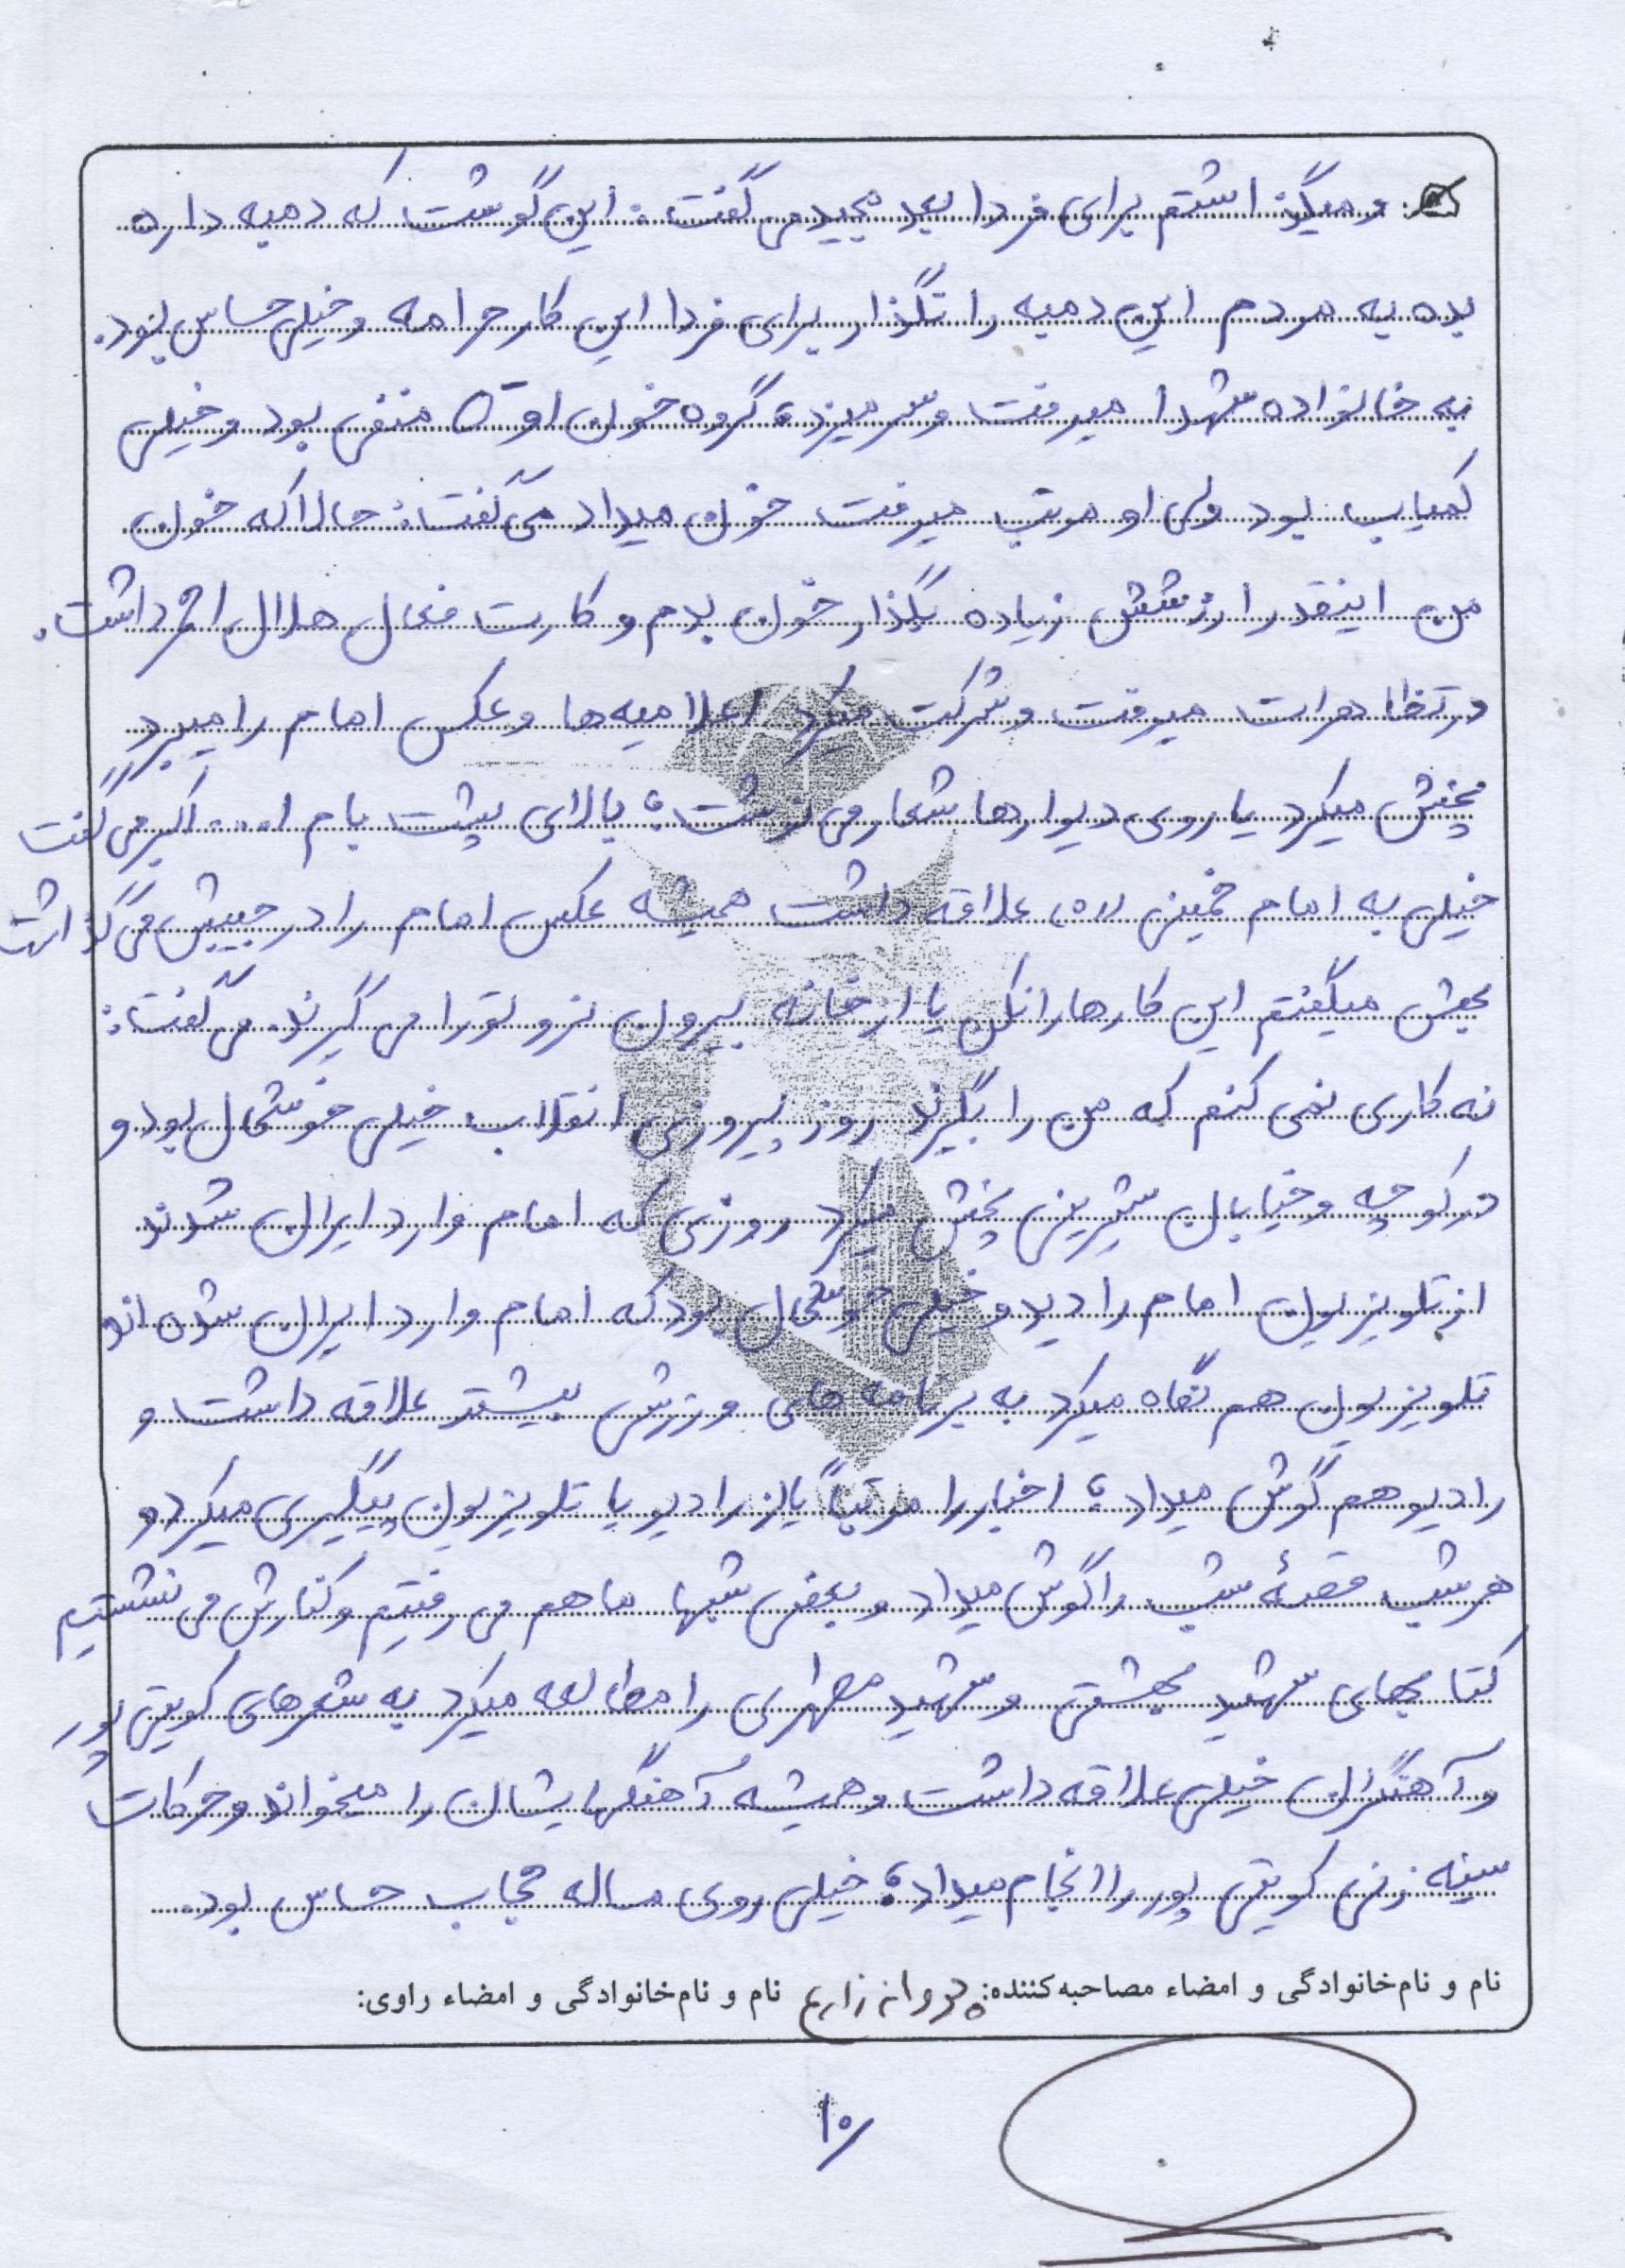 و میگذاشتم برای فردا بعد مجید می گفت: این گوشت که دمبه داره
بده به مردم این دمبه را نگذار برای فردا این کار حرامه و خیلی حساس بود.
به خانواده شهدا میرفت و سر میزد، گروه خون او O منفی بود و خیلی
کمیاب بود ولی او مرتب میرفت خون میداد می گفت: حالا که خون
من اینقدر ارزشش زیاده بگذار خون بدم و کارت فعال هلال احمر داشت.
در تظاهرات میرفت و شرکت میکرد اعلامیه ها و عکس امام را میبرد
پخش میکرد یا روی دیوارها شعار می نوشت، بالای پشت بام ا... اکبر می گفت
خیلی به امام خمینی (ره) علاقه داشت همیشه عکس امام را در جیبش می گذاشت
بهش میگفتم این کارها را نکن یا از خانه بیرون نرو تو را می گیرند. می گفت:
نه کاری نمی کنم که من را بگیرند روز پیروزی انقلاب خیلی خوشحال بود و
در کوچه و خیابان شیرینی پخش میکرد روزی که امام وارد ایران شدند
از تلویزیون امام را دید و خیلی خوشحال بود که امام وارد ایران شده اند
تلویزیون هم نگاه میکرد به برنامه های ورزشی بیشتر علاقه داشت و
رادیو هم گوش میداد، اخبار را مرتباً یا از رادیو یا تلویزیون پیگیری میکرد و
هر شب قصۀ شب را گوش میداد و بعضی شبها ما هم می رفتیم و کنارش می نشستیم
کتابهای شهید بهشتی و شهید مطهری را مطالعه میکرد به شعرهای کویتی پور
و آهنگران خیلی علاقه داشت و همیشه آهنگهایشان را میخواند و حرکات
سینه زنی کویتی پور را انجام میداد، خیلی روی مساله حجاب حساس بود.
نام و نام‌خانوادگی و امضاء مصاحبه‌کننده: پروانه زارع نام و نام‌خانوادگی و امضاء راوی:
۱۰